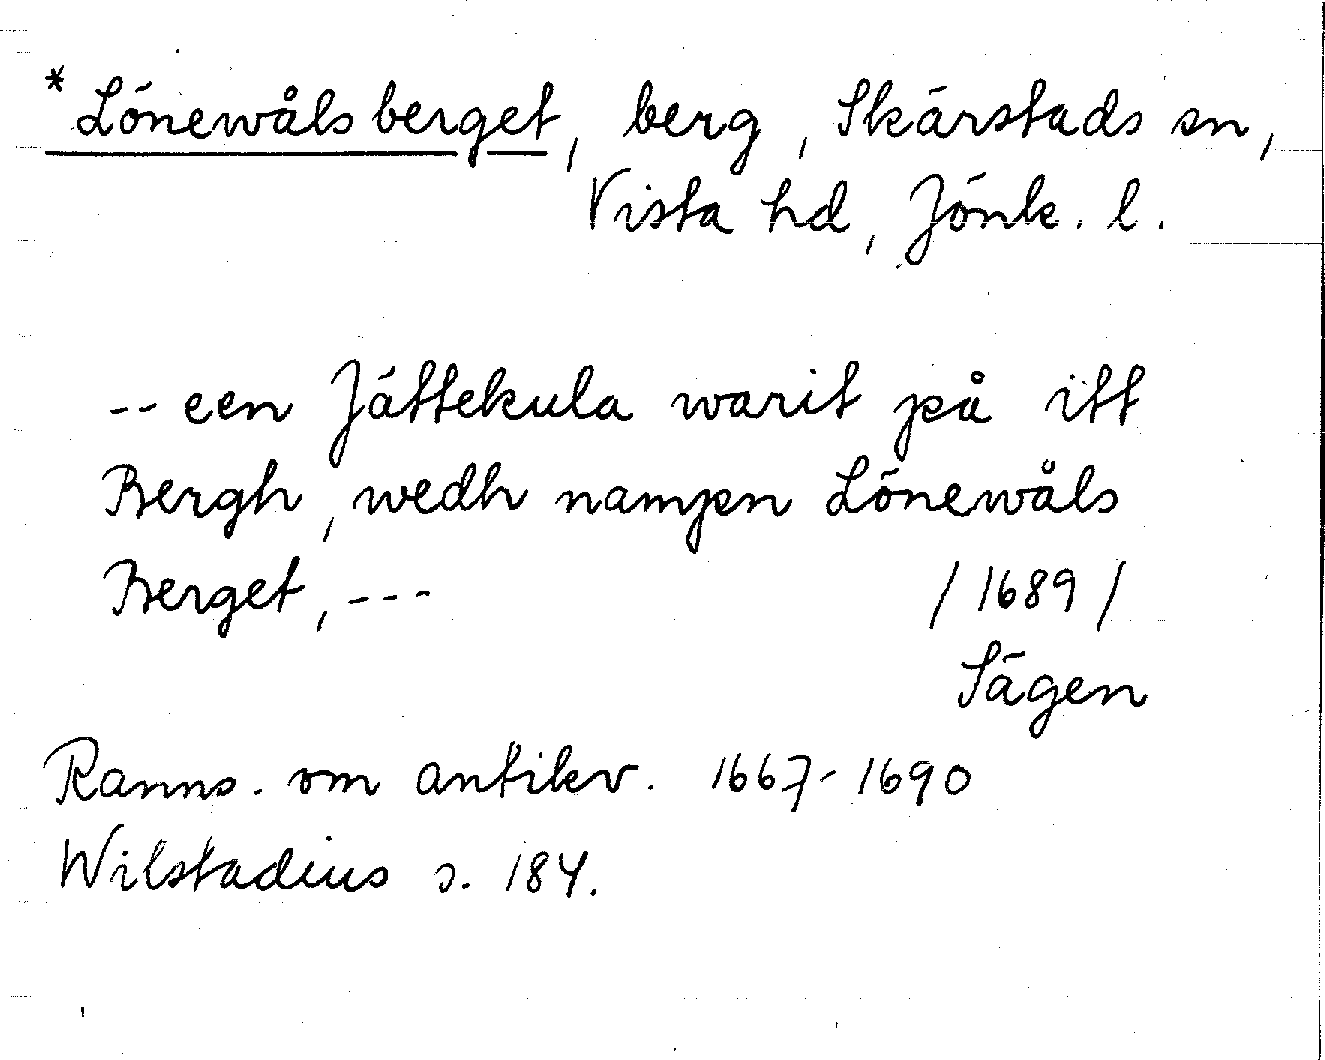 *Lönewålsberget, berg, Skärstads sn,
Vista hd, Jönk. l.
-- een Jättekula warit på itt
Bergh, wedh nampn Lönewåls
Berget, ---
/1689/
Sägen
Ranns. om antikv. 1667-1690
Wilstadius s. 184.